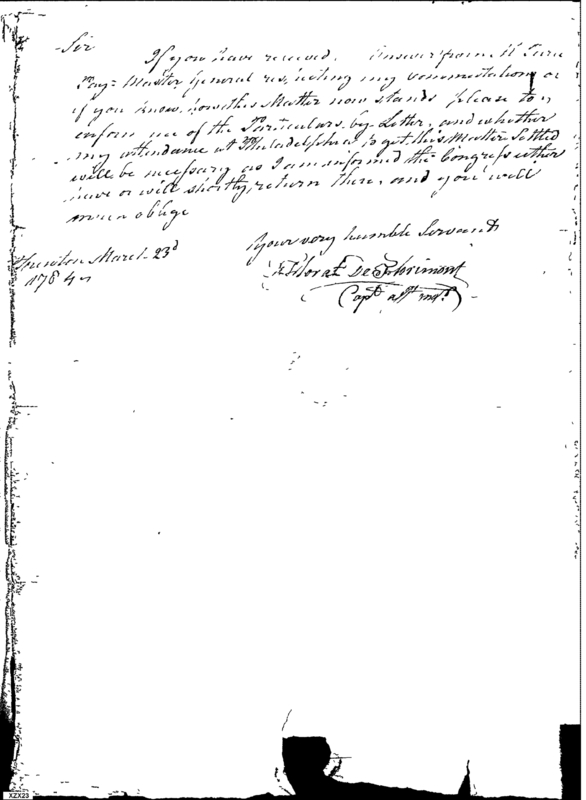 Sir
If you have received. Answer from M
Pay=Master General respecting my commutation or
if you know how this Matter now stands please to
inform me of the Particulars by Letter, and whether
my attendance at Philadelphia to get this Matter Settled
will be necessary as I am informed the Congress either
have or will shortly return there, and you will
much oblige
Your very humble Servant
March 23d
1784
De
Capt
XZX23